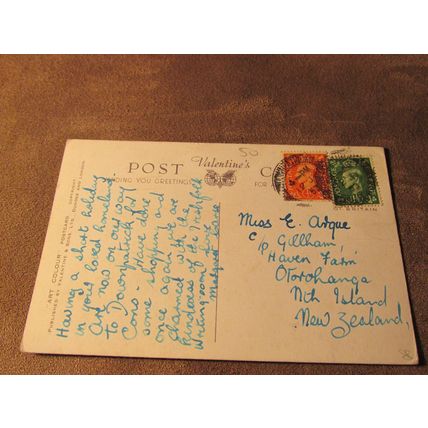 50
POST Valentine's C
DING YOU GREETINGS FOR
BRITAIN
"ART COLOUR" POSTCARD
PUBLISHED BY VALENTINE & SONS, LTD. DUNDEE AND LONDON
Having a short holiday
in your loved homeland.
Are now on our way
to Downpatrick Rly
Cons. Have done
some shopping and
once again we are
charmed with the
kindness of the Irish folk
Writing room
Miss E. Arque
c/o Gillham,
Haven Farm
Otorohanga
Nth Island
New Zealand,